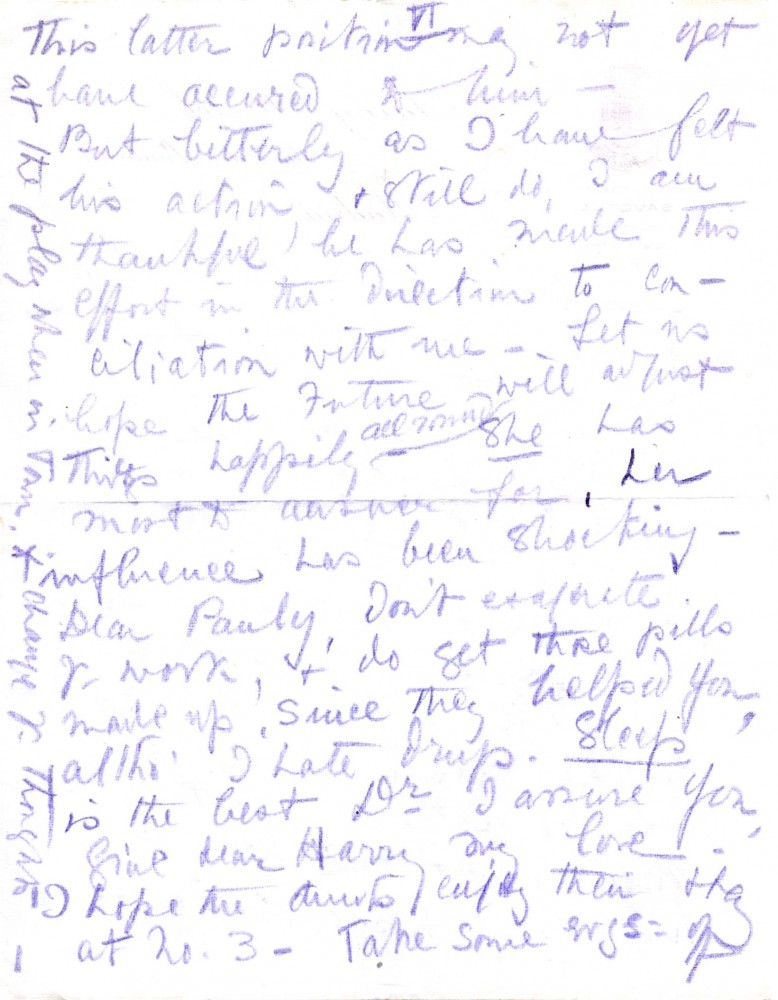 VI
This latter position may not yet
have occured to him —
But bitterly as I have felt
his action, & still do, I am
thankful he has made this
effort in the direction to con-
ciliation with me — Let us
hope the Future will adjust
things happily all round — She has
most to answer for, her
influence has been shocking —
Dear Pauly, Don't
yr work, & do get those pills
made up, since they helped you,
altho' I hate drugs. Sleep
is the best Dr I assure you,
Give dear Harry my love —
I hope the enjoy their stay
at No. 3 — Take some
at the play when in Town, & change yr thoughts!